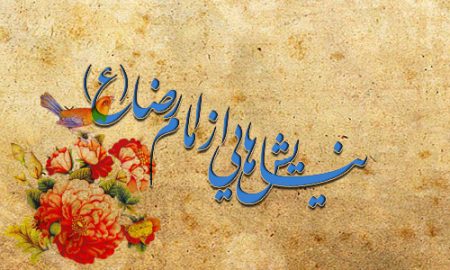 نیایش‌هایی از امام رضا (ع)